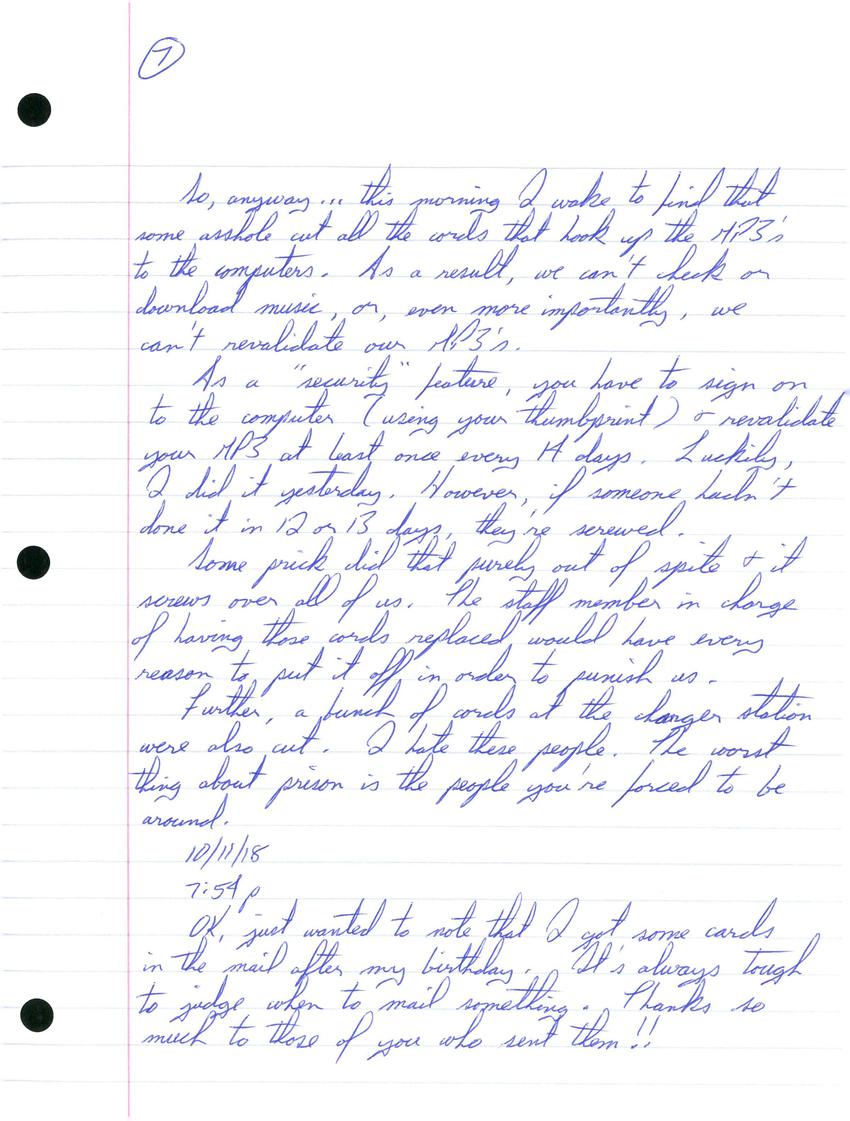 7
So, anyway... this morning I wake to find that
some asshole cut all the cords that hook up the MP3's
to the computers. As a result, we can't check or
download music, or, even more importantly, we
can't revalidate our MP3's.
As a "security" feature, you have to sign on
to the computer (using your thumbprint) & revalidate
your MP3 at least once every 14 days. Luckily,
I did it yesterday. However, if someone hadn't
done it in 12 or 13 days, they're screwed.
Some prick did that purely out of spite & it
screws over all of us. The staff member in charge
of having those cords replaced would have every
reason to put it off in order to punish us.
Further, a bunch of cords at the charger station
were also cut. I hate these people. The worst
thing about prison is the people you're forced to be
around.
10/11/18
7:54 p
OK, just wanted to note that I got some cards
in the mail after my birthday. It's always tough
to judge when to mail something. Thanks so
much to those of you who sent them!!